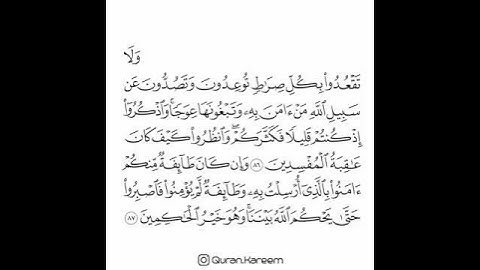 وَلَا
تَقْعُدُوا۟ بِكُلِّ صِرَٰطٍ تُوعِدُونَ وَتَصُدُّونَ عَن
سَبِيلِ ٱللَّهِ مَنْ ءَامَنَ بِهِۦ وَتَبْغُونَهَا عِوَجًا ۚ وَٱذْكُرُوٓا۟
إِذْ كُنتُمْ قَلِيلًا فَكَثَّرَكُمْ ۖ وَٱنظُرُوا۟ كَيْفَ كَانَ
عَٰقِبَةُ ٱلْمُفْسِدِينَ ٨٦ وَإِن كَانَ طَآئِفَةٌ مِّنكُمْ
ءَامَنُوا۟ بِٱلَّذِىٓ أُرْسِلْتُ بِهِۦ وَطَآئِفَةٌ لَّمْ يُؤْمِنُوا۟ فَٱصْبِرُوا۟
حَتَّىٰ يَحْكُمَ ٱللَّهُ بَيْنَنَا ۚ وَهُوَ خَيْرُ ٱلْحَٰكِمِينَ ٨٧
Quran.Kareem